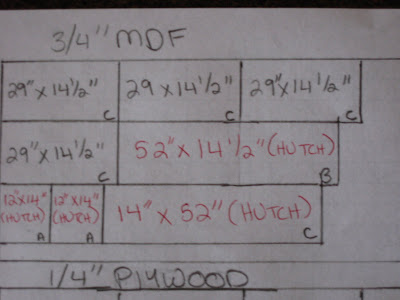 3/4" MDF
29" x 14 1/2" C
29 x 14 1/2" C
29" x 14 1/2" C
29" x 14 1/2" C
52" x 14 1/2" (HUTCH) B
12" x 14" (HUTCH) A
12" x 14" (HUTCH) A
14" x 52" (HUTCH) C
1/4" PLYWOOD